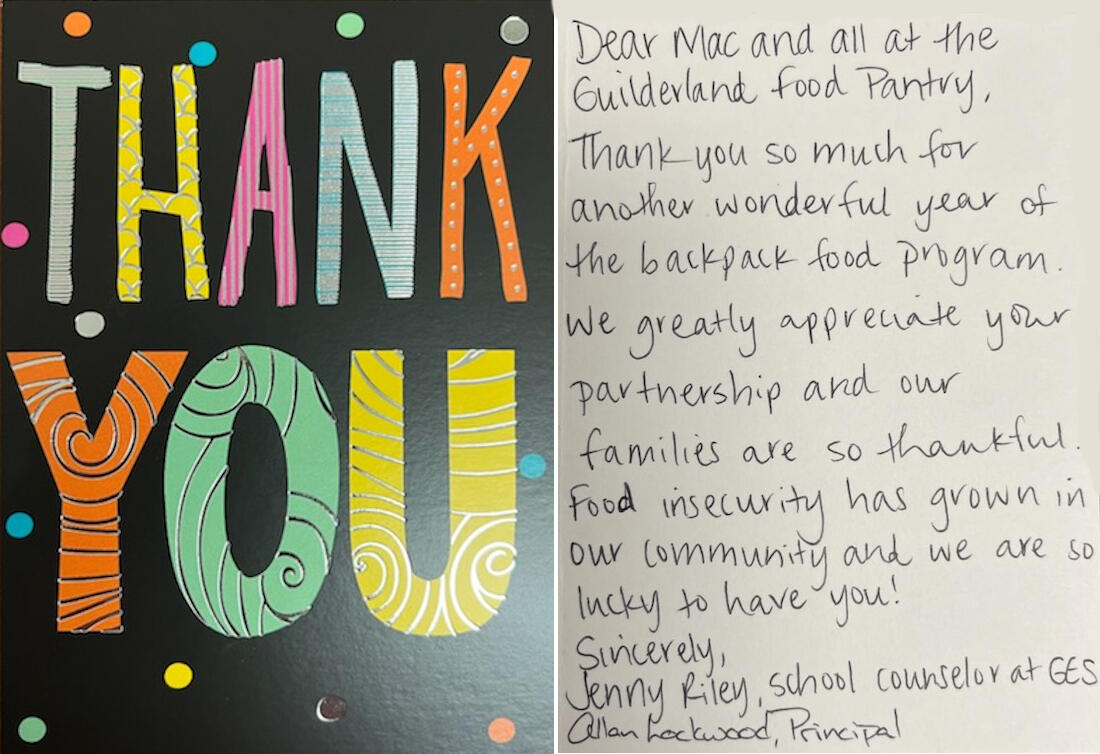 THANK
YOU
Dear Mac and all at the
Guilderland Food Pantry,
Thank you so much for
another wonderful year of
the backpack food program.
We greatly appreciate your
partnership and our
families are so thankful.
Food insecurity has grown in
our community and we are so
lucky to have you!
Sincerely,
Jenny Riley, school counselor at GES
Allan Lockwood, Principal